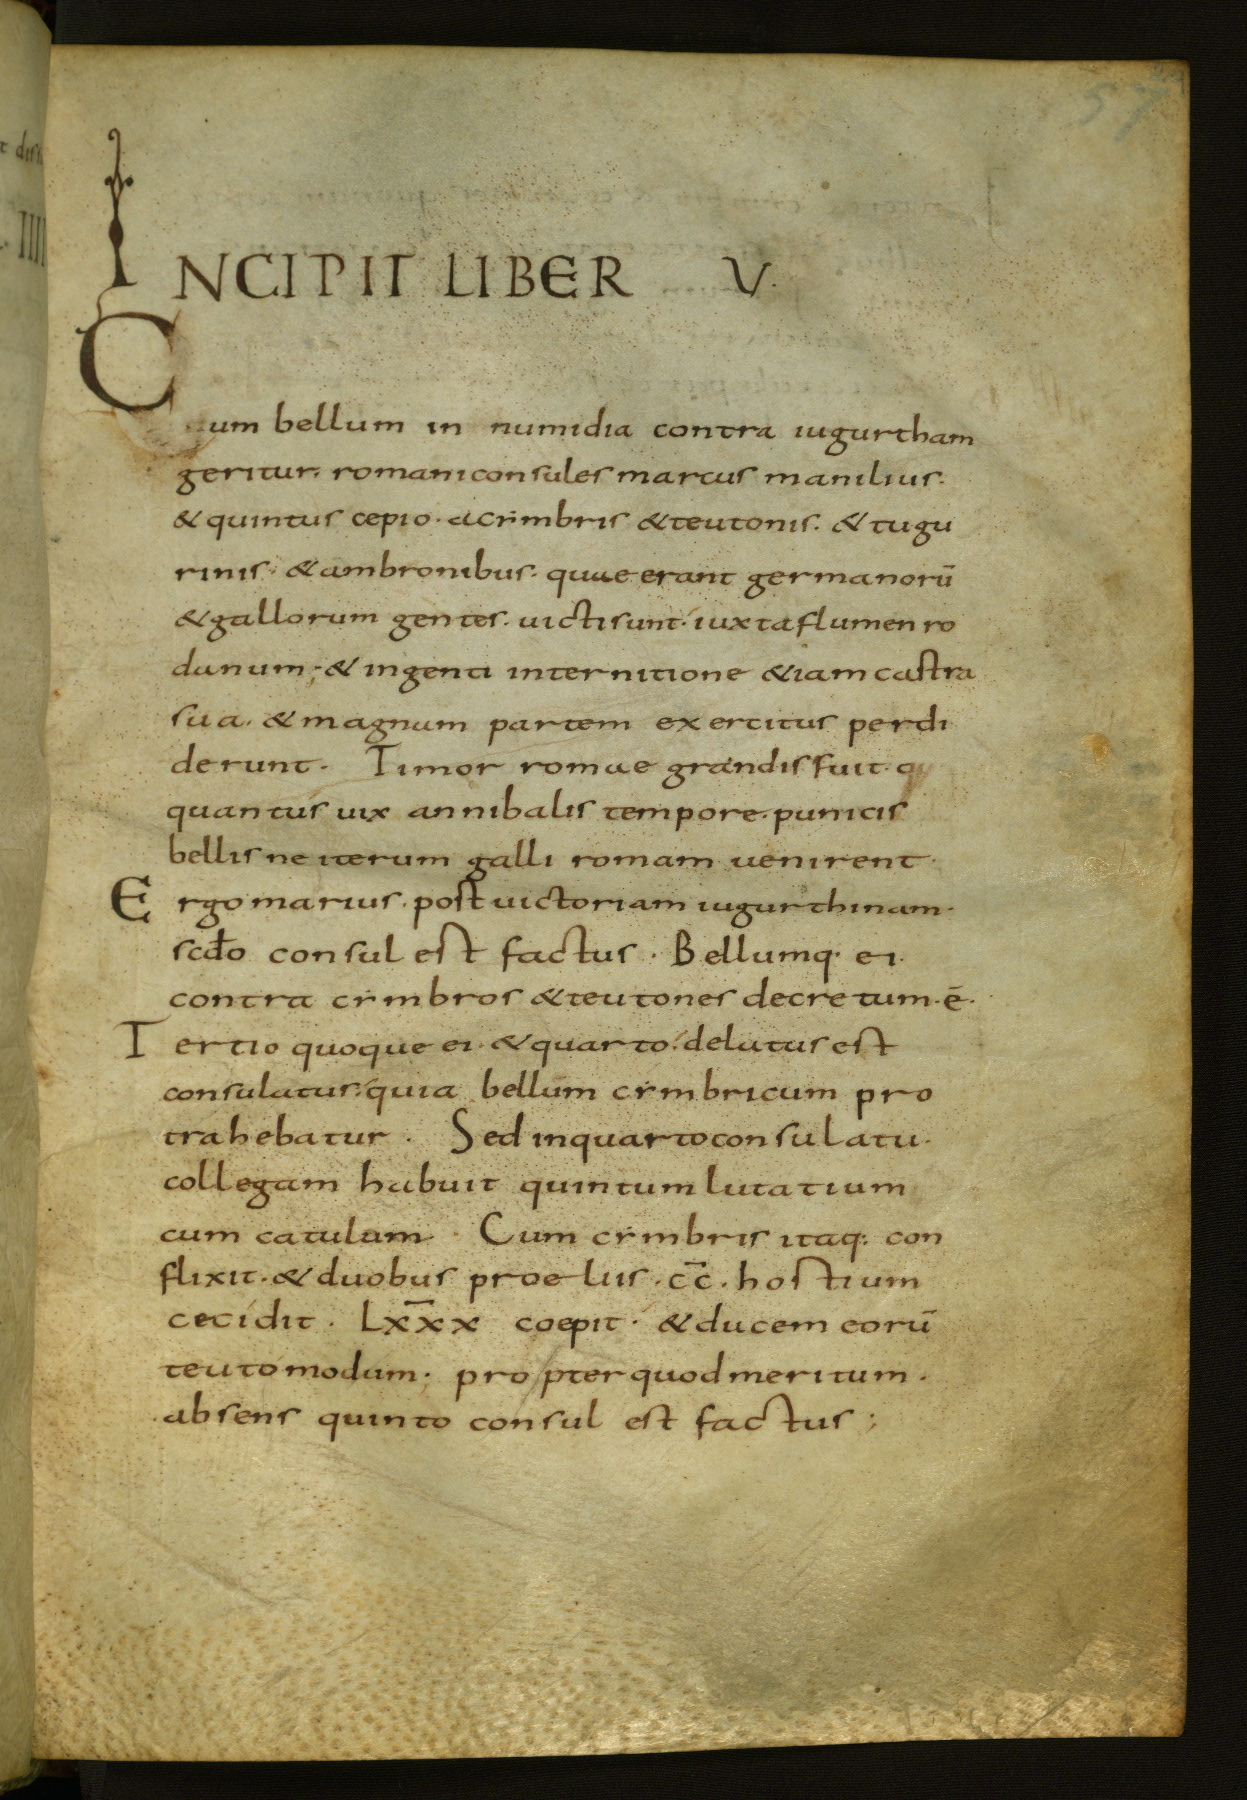 57
INCIPIT LIBER V.
Cum bellum in numidia contra iugurtham
geritur. romani consules marcus manilius.
& quintus cepio. a cimbris & teutonis. & tugu
rinis. & ambronibus. quae erant germanorū
& gallorum gentes. uicti sunt. iuxta flumen ro
danum; & ingenti internitione &iam castra
sua. & magnam partem exercitus perdi
derunt. Timor romae grandis fuit.
quantus uix annibalis tempore. punicis
bellis ne iterum galli romam uenirent.
Ergo marius. post uictoriam iugurthinam.
scđo consul est factus. Bellumq. ei.
contra cimbros & teutones decretum. ē.
Tertio quoque ei. & quarto. delatus est
consulatus. quia bellum cimbricum pro
trahebatur. Sed in quarto consulatu.
collegam habuit quintum lutatium
cum catulum. Cum cimbris itaq: con
flixit. & duobus proeliis. c̄c̄. hostium
cecidit. Lx̄x̄x coepit. & ducem eorū
teutomodum. propter quod meritum.
absens quinto consul est factus;